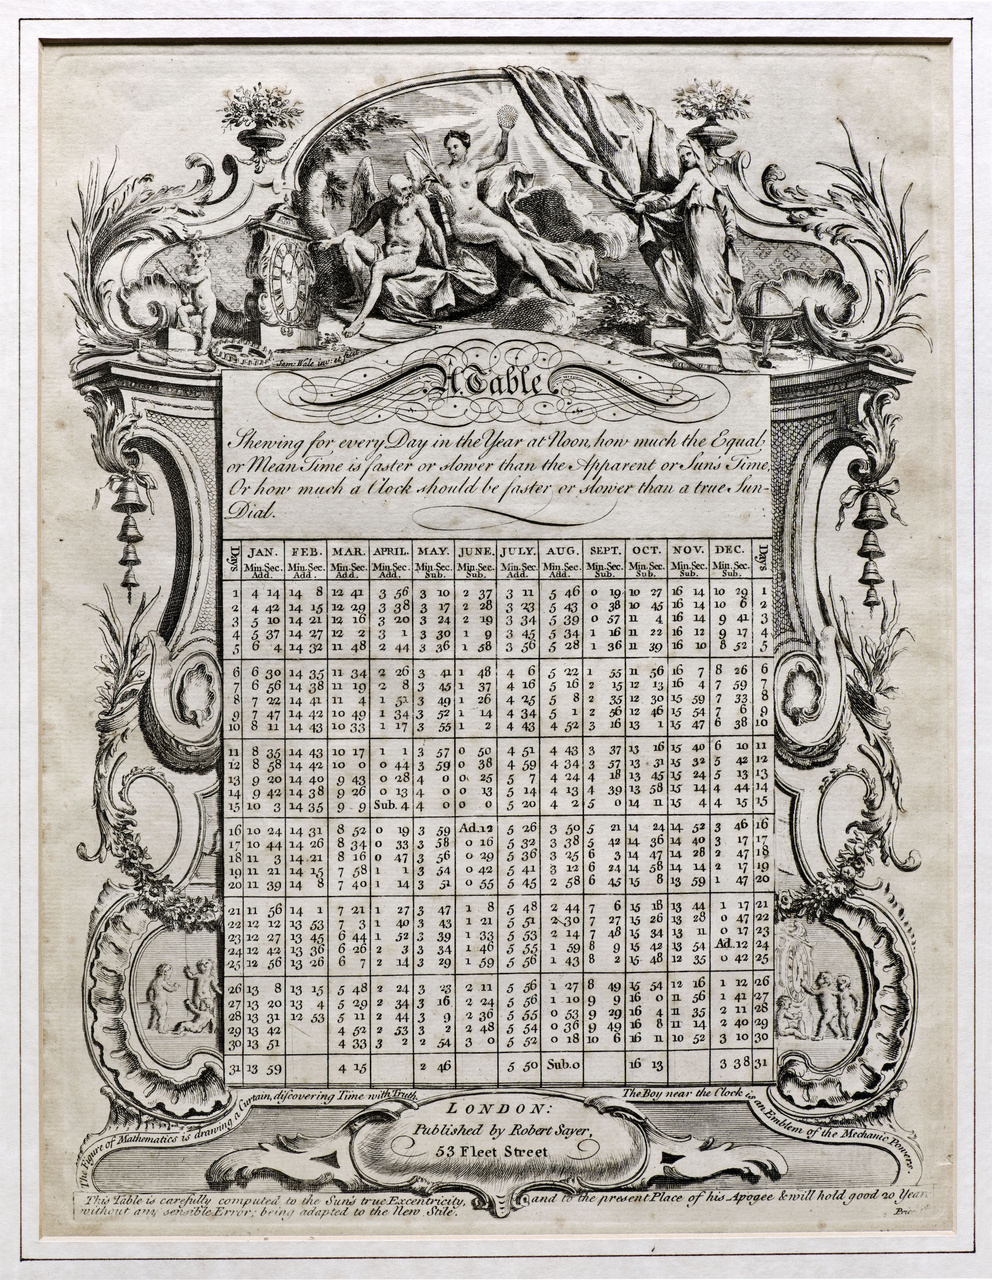 Sam: Wale inv: et fecit
A Table
Shewing for every Day in the Year at Noon, how much the Equal
or Mean Time is faster or slower than the Apparent or Suns Time,
Or how much a Clock should be faster or slower than a true Sun-
Dial.
Days JAN. FEB. MAR. APRIL. MAY. JUNE. JULY. AUG. SEPT. OCT. NOV. DEC. Days
Min. Sec. Min. Sec. Min. Sec. Min. Sec. Min. Sec. Min. Sec. Min. Sec. Min. Sec. Min. Sec. Min. Sec. Min. Sec. Min. Sec.
Add. Add. Add. Add. Sub. Sub. Add. Add. Sub. Sub. Sub. Sub.
1 4 14 14 8 12 41 3 56 3 10 2 37 3 11 5 46 0 19 10 27 16 14 10 29 1
2 4 42 14 15 12 29 3 38 3 17 2 28 3 23 5 43 0 38 10 45 16 14 10 6 2
3 5 10 14 21 12 16 3 20 3 24 2 19 3 34 5 39 0 57 11 4 16 14 9 41 3
4 5 37 14 27 12 2 3 1 3 30 1 9 3 45 5 34 1 16 11 22 16 12 9 17 4
5 6 4 14 32 11 48 2 44 3 36 1 58 3 56 5 28 1 36 11 39 16 10 8 52 5
6 6 30 14 35 11 34 2 26 3 41 1 48 4 6 5 22 1 55 11 56 16 7 8 26 6
7 6 56 14 38 11 19 2 8 3 45 1 37 4 16 5 16 2 15 12 13 16 4 7 59 7
8 7 22 14 41 11 4 1 51 3 49 1 26 4 25 5 8 2 35 12 30 15 59 7 33 8
9 7 47 14 42 10 49 1 34 3 52 1 14 4 34 5 1 2 56 12 46 15 54 7 6 9
10 8 11 14 43 10 33 1 17 3 55 1 2 4 43 4 52 3 16 13 1 15 47 6 38 10
11 8 35 14 43 10 17 1 1 3 57 0 50 4 51 4 43 3 37 13 16 15 40 6 10 11
12 8 58 14 42 10 0 0 44 3 59 0 38 4 59 4 34 3 57 13 31 15 32 5 42 12
13 9 20 14 40 9 43 0 28 4 0 0 25 5 7 4 24 4 18 13 45 15 24 5 13 13
14 9 42 14 38 9 26 0 13 4 0 0 13 5 14 4 13 4 39 13 58 15 14 4 44 14
15 10 3 14 35 9 9 Sub. 4 4 0 0 0 5 20 4 2 5 0 14 11 15 4 4 15 15
16 10 24 14 31 8 52 0 19 3 59 Ad. 12 5 26 3 50 5 21 14 24 14 52 3 46 16
17 10 44 14 26 8 34 0 33 3 58 0 16 5 32 3 38 5 42 14 36 14 40 3 17 17
18 11 3 14 21 8 16 0 47 3 56 0 29 5 36 3 25 6 3 14 47 14 28 2 47 18
19 11 21 14 15 7 58 1 1 3 54 0 42 5 41 3 12 6 24 14 58 14 14 2 17 19
20 11 39 14 8 7 40 1 14 3 51 0 55 5 45 2 58 6 45 15 8 13 59 1 47 20
21 11 56 14 1 7 21 1 27 3 47 1 8 5 48 2 44 7 6 15 18 13 44 1 17 21
22 12 12 13 53 7 3 1 40 3 43 1 21 5 51 2 30 7 27 15 26 13 28 0 47 22
23 12 27 13 45 6 44 1 52 3 39 1 33 5 53 2 14 7 48 15 34 13 11 0 17 23
24 12 42 13 36 6 26 2 3 3 34 1 46 5 55 1 59 8 9 15 42 13 54 Ad. 12 24
25 12 56 13 26 6 7 2 14 3 29 1 59 5 56 1 43 8 2 15 48 12 35 0 42 25
26 13 8 13 15 5 48 2 24 3 23 2 11 5 56 1 27 8 49 15 54 12 16 1 12 26
27 13 20 13 4 5 29 2 34 3 16 2 24 5 56 1 10 9 9 16 0 11 56 1 41 27
28 13 31 12 53 5 11 2 44 3 9 2 36 5 55 0 53 9 29 16 4 11 35 2 11 28
29 13 42 4 52 2 53 3 2 2 48 5 54 0 36 9 49 16 8 11 14 2 40 29
30 13 51 4 33 3 2 2 54 3 0 5 52 0 18 10 6 16 11 10 52 3 10 30
31 13 59 4 15 2 46 5 50 Sub. 0 16 13 3 38 31
The Figure of Mathematics is drawing a Curtain, discovering Time with Truth.
The Boy near the Clock is an Emblem of the Mechanic Powers.
LONDON:
Published by Robert Sayer,
53 Fleet Street
This Table is carefully computed to the Sun's true Excentricity, and to the present Place of his Apogee & will hold good 20 Year
without any sensible Error; being adapted to the New Stile.